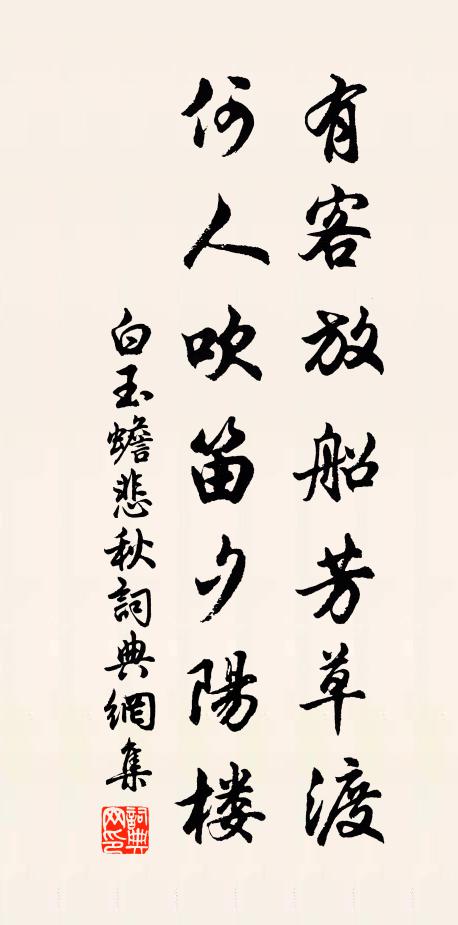 有客放船芳草渡
何人吹笛夕陽楼
白玉蟾悲秋詞典網集
詞典網印